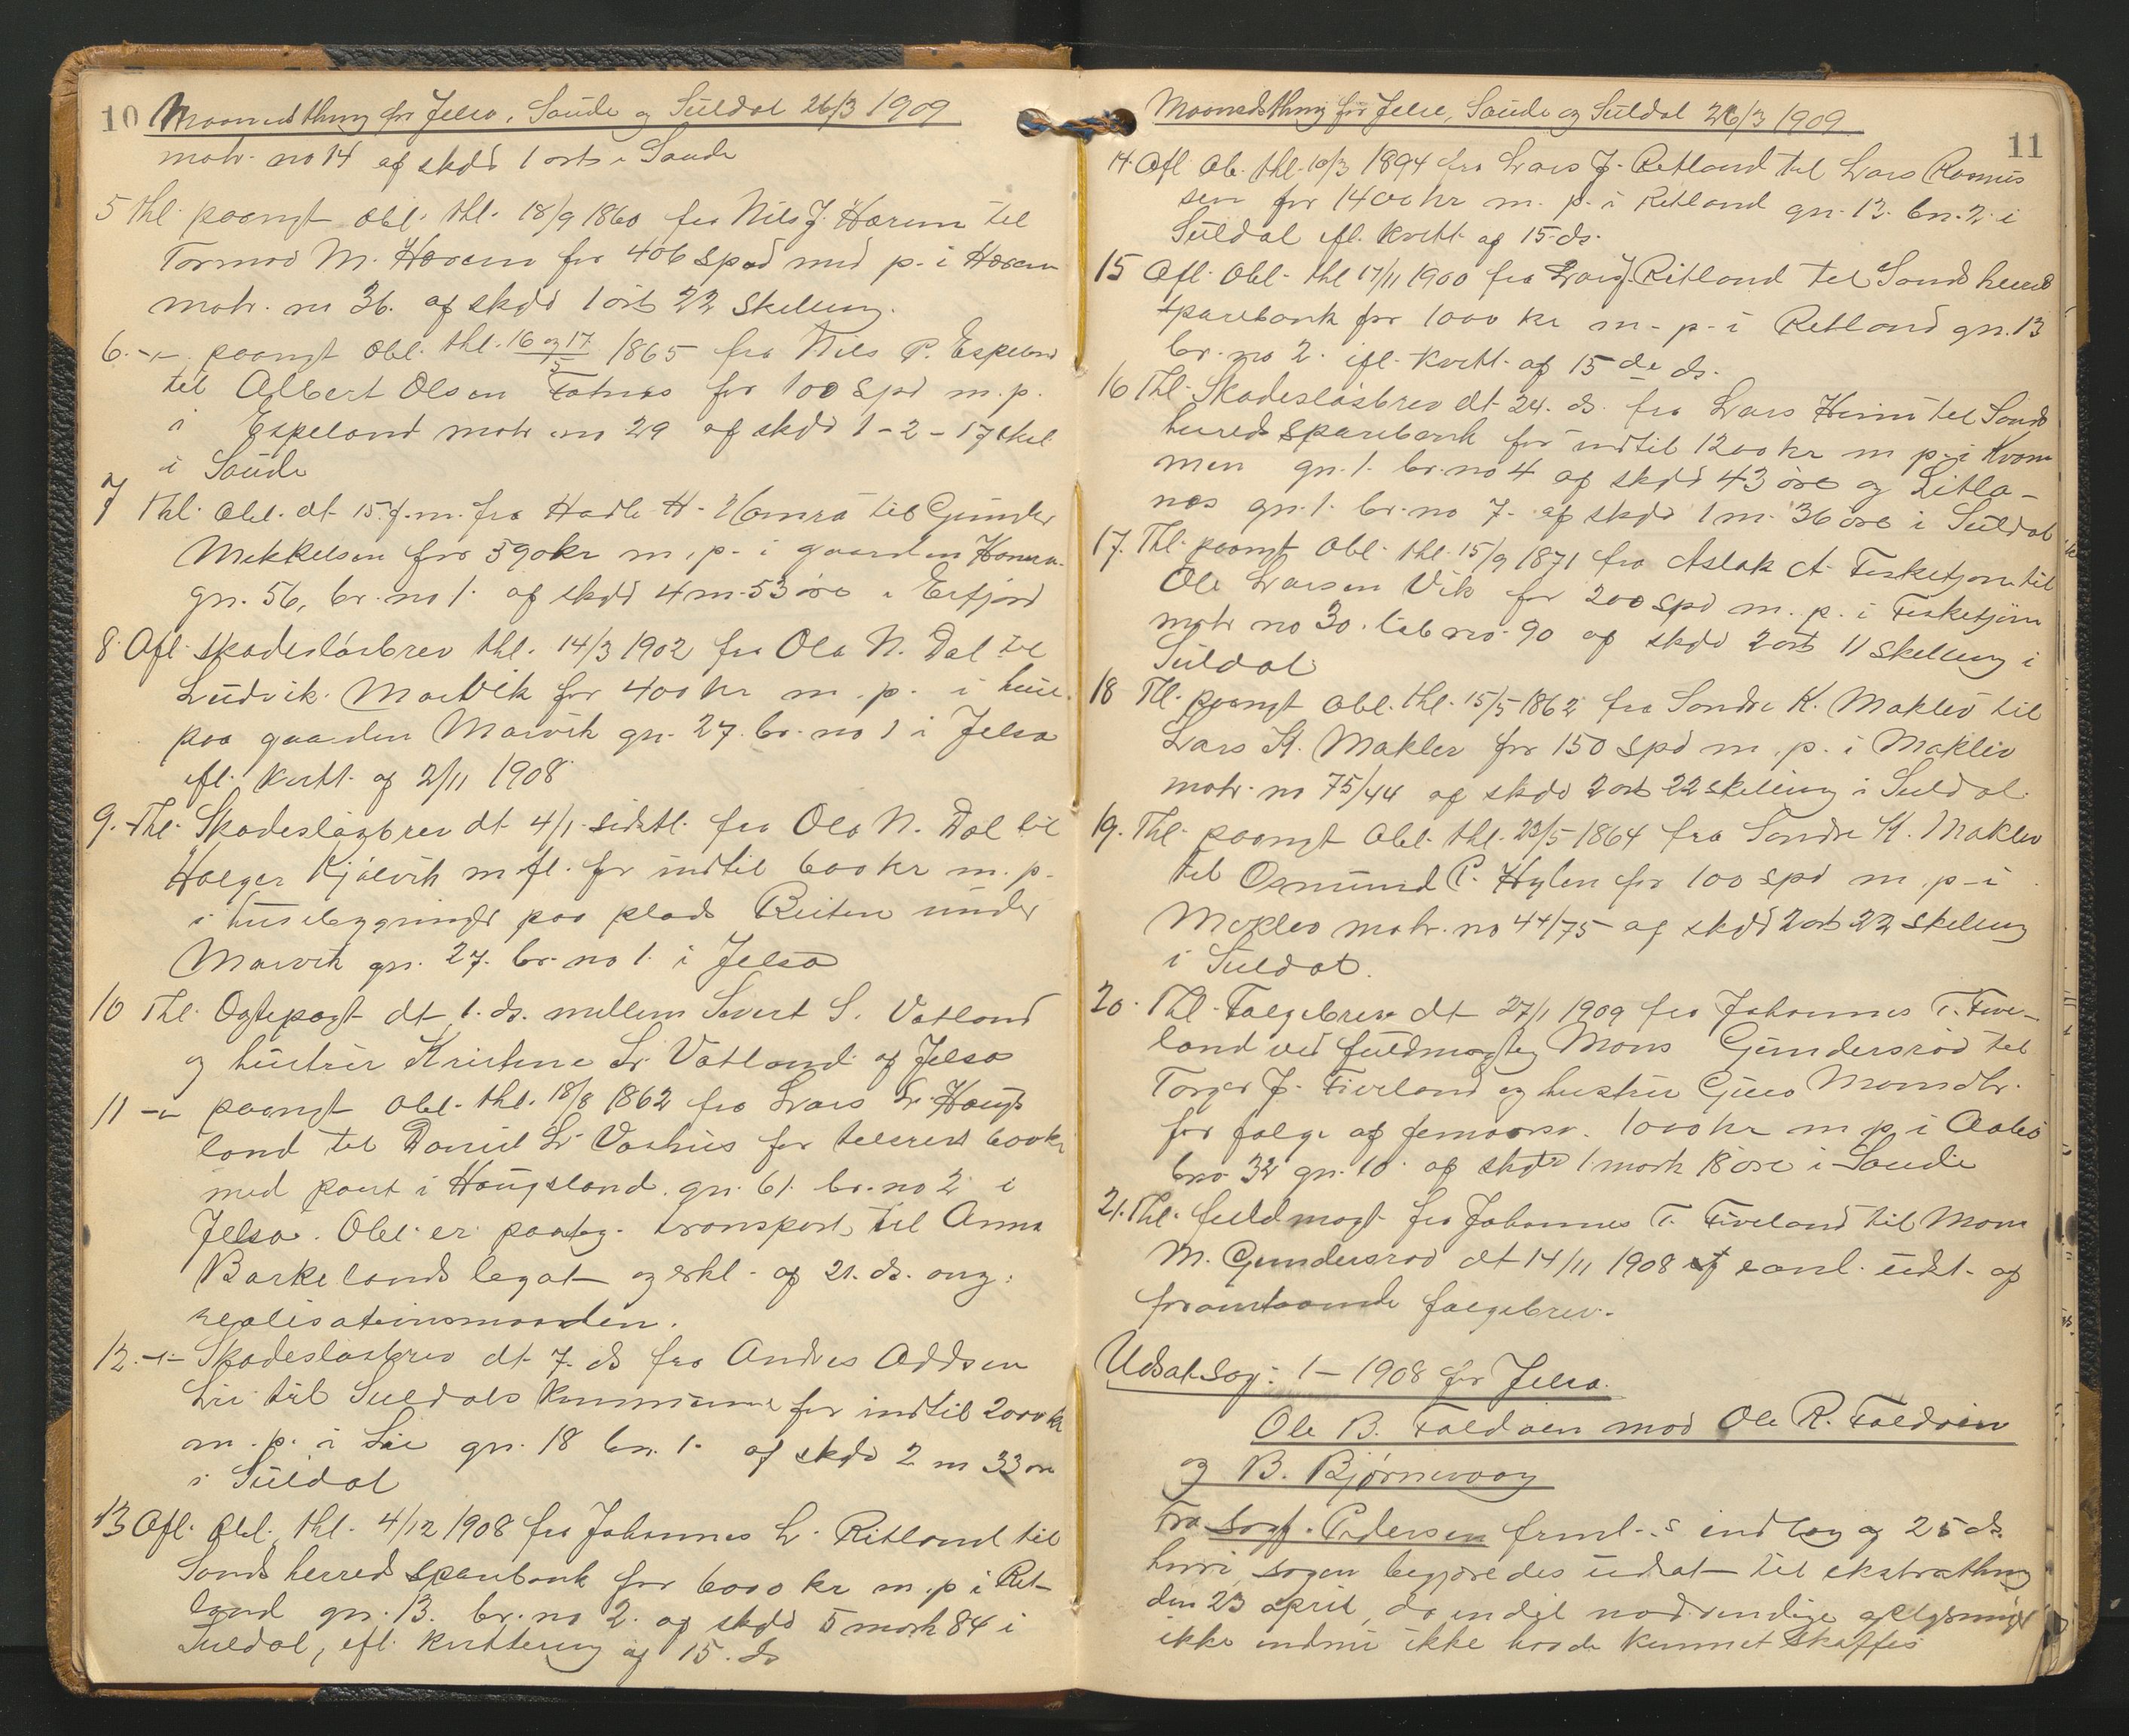 10 Maanedsthing for Jelsa, Saude og Suldal 26/3 1909
matr. no 14 af skyld 1 ort i Saude
5 Thl. paangt obl. thl. 18/9 1860 fra Nils J. Hærem til
Tormod M. Hærem for 406 spd med p. i Hærem
matr. no 36. af skyld 1 ort 22 skilling.
6. -"- paangt obl. thl. 16 og 17/5 1865 fra Nils P. Espeland
til Albert Olsen for 100 Spd m. p.
i Espeland matr no 29 af skyld 1 - 2 - 17 skil
i Saude
7 Thl. obl. dt. 15. f. m. fra Hadle H. Hamra til Gunder
Mikkelsen for 590 kr m. p. i gaarden Hamra
gn. 56, br. no 1. af skyld 4 m. 53 øre i Erfjord
8. Afl. skadesløsbrev thl. 14/3 1902 fra Ola N. Dal til
Ludvik Marvik for 400 kr m. p. i huse
paa gaarden Marvik gn. 27. br. no 1 i Jelsa
ifl. kvitt. af 2/11 1908
9. Thl. Skadesløsbrev dt. 4/1 sidstl. fra Ola N. Dal til
Holger Kjølvik m fl. for indtil 600 kr m. p.
i husebygninger paa plads Reiten under
Marvik gn. 27. br. no 1. i Jelsa
10 Thl. Ægtepagt dt. 1. ds. mellem Sivert S. Vatland
og hustru Kristine L. Vatland af Jelsa
11 -"- paangt obl. thl. 18/8 1862 fra Lars L. Haugs
land til Daniel L. Vashus for tilrest 600 kr
med pant i Haugsland. gn. 61. br. no 2 i
Jelsa. Obl. er paateg. transport til Anna
Barkelands legat og erkl. af 21. ds. ang.
realisationsmaaden.
12. -"- Skadesløsbrev dt. 7. ds fra Andres Addsen
Lie til Suldals kommune for indtil 2000 kr
m. p. i Lie gn. 18 bn. 1. af skyld 2 m 33 øre
i Suldal
13 Afl. Obl. thl. 4/12 1908 fra Johannes L. Ritland til
Sands herreds sparebank for 6000 kr m. p i Rit-
land gn. 13. br. no 2. af skyld 5 mark 84 i
Suldal, ifl. kvittering af 15. ds
Maanedsthing for Jelse, Saude og Suldal 26/3 1909
11
14. Afl. Ob. thl. 10/3 1894 fra Lars J. Ritland til Lars Rasmus
sen for 1400 kr m. p. i Ritland gn. 13. bn. 2. i
Suldal ifl. kvitt. af 15. ds.
15 Afl. Obl. thl 17/11 1900 fra Lars J. Ritland til Sands herred
sparebank for 1000 kr m. p. i Ritland gn. 13
br. no 2. ifl. kvitt. af 15 de ds.
16 Thl. Skadesløsbrev dt. 24. ds. fra Lars til Sands
herreds sparebank for indtil 1200 kr m p. i Kvam
men gn. 1. br. no 4 af skyld 43 øre og Litla-
nes gn. 1. br. no 7. af skyld 1 m. 36 øre i Suldal
17. Thl. paangt Obl. thl. 15/9 1871 fra Aslak A. Fisketjøn til
Ole Larsen Vik for 200 spd m. p. i Fisketjøn
matr no 30. løb no. 90 af skyld 2 ort 11 skilling i
Suldal
18 Thl. paangt obl. thl. 15/5 1862 fra Sondre K. Maklev til
Lars H. Maklev for 150 spd m. p. i Maklev
matr. no 75/44 af skyld 2 ort 22 skilling i Suldal.
19. Thl. paangt obl. thl. 23/5 1864 fra Sondre K. Maklev
til Osmund P. Hylen for 100 spd m p i
Maklev matr. no 44/75 af skyld 2 ort 22 skilling
i Suldal.
20. Thl. Følgebrev dt. 27/1 1909 fra Johannes T. Five-
land ved fuldmægtig Mons Gundersrød til
Torger J. Fiveland og hustru Guro Monsdtr.
for følge af femaarsv. 1000 kr m p i
bno 32 gn. 10. af skyld 1 mark 18 øre i Saude
21. Thl. fuldmagt fra Johannes T. Fiveland til Mons
M. Gundersrød dt 14/11 1908 til udst. af
foranstaaende følgebrev.
Udsat Sag: 1 - 1908 for Jelsa.
Ole B. Foldøen mod Ole R. Foldøen
og B. Bjørnevaag
Fra Sagf. Pedersen freml.s indlæg af 25 ds.
hvori sagen begjæredes udsat til ekstrathing
den 23 april, da endel nødvendige oplysninger
ikke endnu ikke havde kunnet skaffes